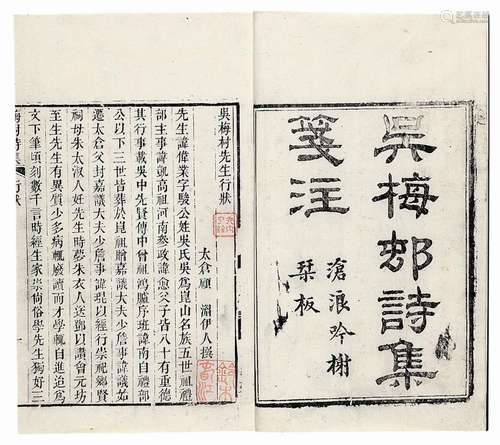 吳梅邨詩集
箋注
滄浪吟榭
栞板
吳梅村先生行狀
太倉顧 湄伊人撰
先生諱偉業字駿公姓吳氏吳爲崑山名族五世祖禮
部主事諱凱高祖河南參政諱愈父子皆八十有重
其行事載吳中先賢傳中曾祖鴻臚序班諱南自禮部
公以下三世皆葬於崑祖贈嘉議大夫少詹事諱議始
遷太倉父封嘉議大夫少詹事諱琨以經行崇祀鄉賢
祠母朱太淑人妊先生時夢朱衣人送鄧以讚會元坊
至生先生有異質少多病輒廢讀而才學輒自進迨爲
文下筆頃刻數千言時經生家崇尚俗學先生獨好三
梅村詩集 行狀